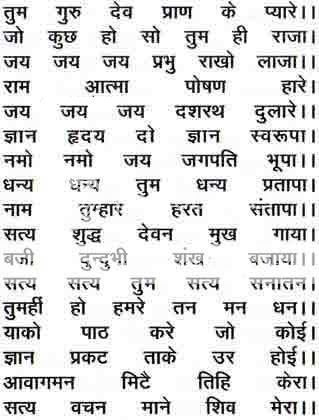 तुम गुरु देव प्राण के प्यारे।।
जो कुछ हो सो तुम ही राजा।
जय जय जय प्रभु राखो लाजा।।
राम आत्मा पोषण हारे।
जय जय जय दशरथ दुलारे।।
ज्ञान हृदय दो ज्ञान स्वरूपा।
नमो नमो जय जगपति भूपा।।
धन्य धन्य तुम धन्य प्रतापा।
नाम तुम्हार हरत संतापा।।
सत्य शुद्ध देवन मुख गाया।
बजी दुन्दुभी शंख बजाया।।
सत्य सत्य तुम सत्य सनातन।
तुमहीं हो हमरे तन मन धन।।
याको पाठ करे जो कोई।
ज्ञान प्रकट ताके उर होई।।
आवागमन मिटै तिहि केरा।
सत्य वचन माने शिव मेरा।।